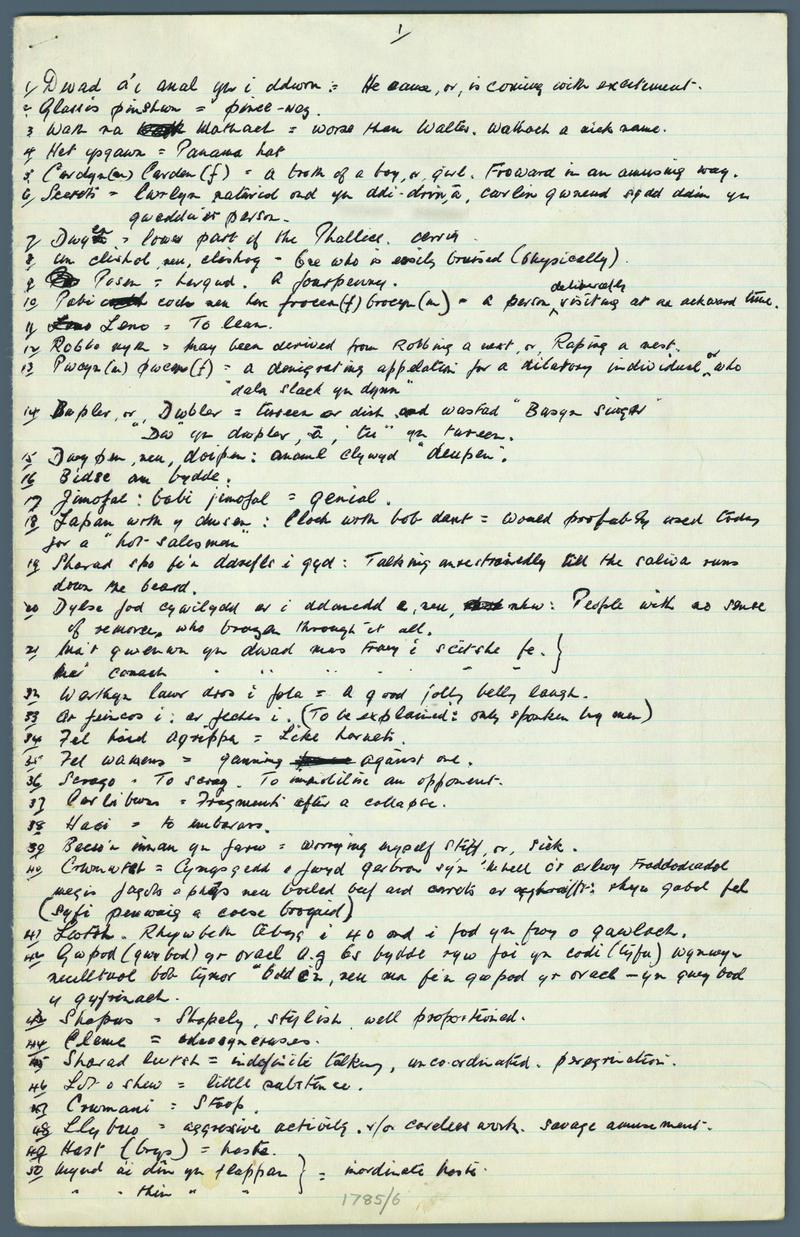 1
1/ Dwad a'i anal yn i ddwrn = He came, or, is coming with excitement.
2 Glassis pinshwn = pince-nez.
3 Wath na Wathach = worse than Walter. Wathach a nick name.
4 Het ysgawn = Panama hat
5 Cordyn(m) Corden(f) = a broth of a boy, or, girl. Froward in an amusing way.
6 Secroti = Cwrlyn naturiol ond yn ddi-drinia, cwrlin gwneud sydd ddim yn
gweddu i'r person.
7 = lower part of the
8 un clishol, neu, clishog - One who is easily bruised (physically).
9 Posen = hergwd. A fourpenny.
10 Pabi coch neu hen frocen(f) brocyn(m) = a person deliberately visiting at an ackward time.
11 Leno = To lean.
12 Robbo nyth = may been derived from Robbing a nest, or, Raping a nest.
13 Pwcyn(m) pwcen(f) = a denigrating appelation for a dilatory individual, or who
"dala slack yn dynn"
14 Bwpler, or, Dwbler = tureen or dish and wastad "Basyn Singar"
"Dw" yn dwpler, a, "tu" yn tureen.
15 Dwypen, neu, doipen: anaml clywyd "deupen".
16 Bidse am bydde.
17 Jinofal: babi jinofal = genial.
18 Lapan wrth y dwsen: Cloch wrth bob dant = Would profably used today
for a "hot-salesman"
19 Sharad spo fi'n ddrefls i gyd: Talking unrestrainedly till the saliva runs
down the beard.
20 Dylse fod cywilydd ar i ddannedd e, neu, nhw: People with no sense
of remorse, who brazen through it all.
21 Ma'i gwenwn yn dwad mas trwy i scitshe fe. }
Mae conach " " " - - - }
32 Warthyn lawr dros i fola = A good jolly belly laugh.
33 Ar feincos i: ar feches i. (To be explained: only spoken by men)
34 Fel haid Agrippa = Like hornets.
35 Fel wamens = ganning against one.
36 Scrago = To scrag. To imobilise an opponent.
37 Carlibwns = Fragments after a collapse.
38 Hagi = to embarass.
39 Becso'n innan yn farw = worrying myself stiff, or, sick.
40 Crwnwth = Cymysgedd o fwyd gerbron sy'n 'mhell o'r arlwy Traddodiadol
megis fagots a phys neu boiled beef and carrots er rhyw gabol fel
(Syfi penwaig a coese brogaid)
41 Lwtsh. Rhywbeth tebyg i 40 ond i fod yn fwy o gawlach.
42 Gwpod (gwybod) yr oracl A.g Os bydde ryw foi yn codi (tyfu) wynwyn
neulltuol bob tymor "Odd e'n, neu ma fe'n gwpod yr oracl - yn gwybod
y gyfrinach.
43 Shapus = Shapely, stylish, well proportioned.
44 Cleme = edeosyncrases.
45 Sharad lwtsh = indefinite talking, unco-ordinated. peregrination.
46 Lot o shew = little substance.
47 Crwmani = Stoop.
48 Llybro = aggressive activity. +/or careless work. savage amusement.
49 Hast (brys) = haste.
50 Mynd a'i din yn fflappan } = inordinate haste.
" " thin " " }
1785/6